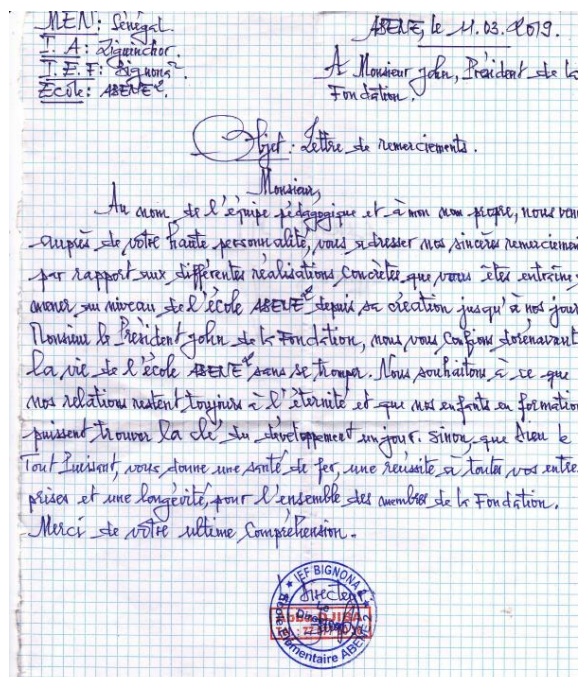 MEN: Sénégal.
I.A: Ziguinchor.
I.E.F: Bignona 2.
École: ABENE 2.
ABENE, le 11.03.2019.
A Monsieur John, Président de la
Fondation.
Objet: Lettre de remerciements.
Monsieur,
Au nom de l'équipe pédagogique et à mon nom propre, nous ven
auprès de votre haute personnalité, vous adresser nos sincères remerciemen
par rapport aux différentes réalisations concrètes que vous êtes entrain
mener au niveau de l'école ABENE 2 depuis sa création jusqu'à nos jour
Monsieur le Président John de la Fondation, nous vous confions dorénavant
la vie de l'école ABENE 2 sans se tromper. Nous souhaitons à ce que
nos relations restent toujours à l'éternité et que nos enfants en formation
puissent trouver la clé du développement un jour. Sinon, que Dieu le
Tout Puissant, vous donne une santé de fer, une réussite à toutes vos entre
prises et une longévité, pour l'ensemble des membres de la Fondation.
Merci de votre ultime compréhension.
IEF BIGNONA 2
Directeur
DJIBA
École Elémentaire ABENE 2